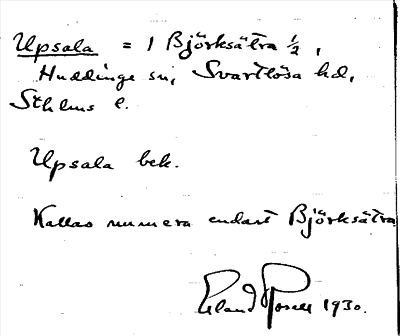 Upsala = 1 Björksätra ½,
Huddinge sn, Svartlösa hd,
Sthlms l.
Upsala bek.
Kallas numera endast Björksätra
Erland Rosell 1930.